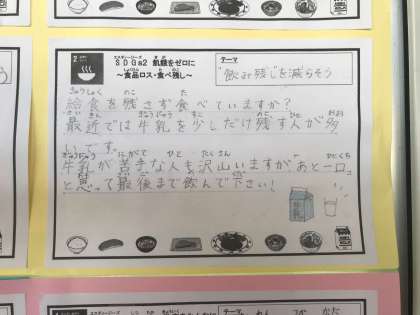 SDGs2 飢餓をゼロに
～食品ロス・食べ残し～
テーマ
"飲み残し"を減らそう
給食を残さず食べていますか?
最近では牛乳を少しだけ残す人が多
いです。
牛乳が苦手な人も沢山いますが、あと一口
と思って最後まで飲んで下さい!